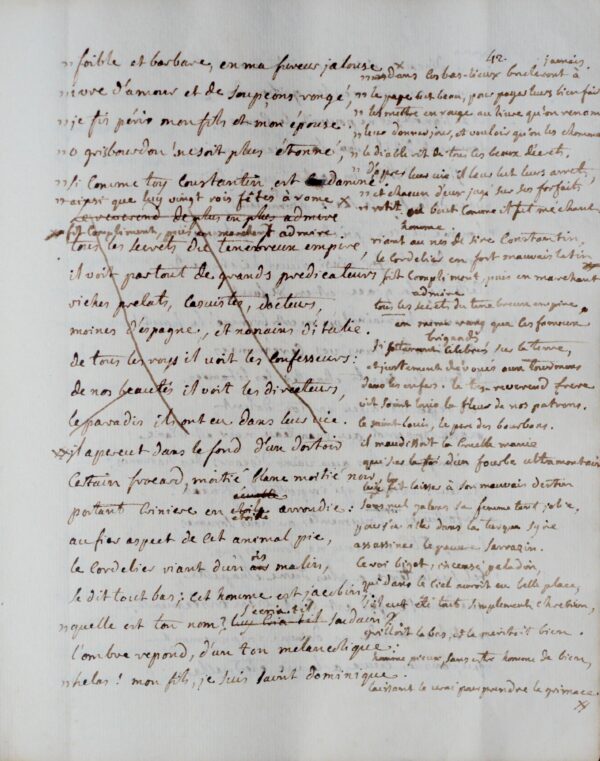 42.
" foible et barbare, en ma fureur jalouse
" ivre d'amour et de soupçons rongé,
" je fis périr mon fils et mon épouse.
" o grisbourdon! ne soit plus étonné,
" si comme toy Constantin est damné.
" ainsi que luy vingt rois fêtés à rome X
le reverend de plus en plus admire
fit compliment, puis en marchant admire
tous les secrets du tenebreux empire,
il voit partout de grands predicateurs
riches prelats, casuistes, docteurs,
moines d'espagne, et nonains d'italie.
de tous les roys il voit les confesseurs:
de nos beautés il voit les directeurs,
le paradis ils ont eu dans leur vie.
X il aperçut dans le fond d'un dortoir
certain frocard, moitié blanc moitié noir,
portant criniere en écuelle arrondie.
au fier aspect de cet animal pie,
le cordelier riant d'un ris malin,
se dit tout bas; cet homme est jacobin
" quelle est ton nom? s'écria t-il soudain?
l'ombre repond, d'un ton mélancolique:
" helas! mon fils, je suis saint dominique.
jamais
X " dans les bas-lieux bruleront à
" le pape eut beau, pour payer leurs bienfaits
" les mettre en rouge au livre qu'on renomme
" leur donner jour, et vouloir qu'on les chomme
" le diable rit de tous les beaux décrets,
" d'apres leur vie il leur lut leurs arrets,
" et chacun d'eux jugé sur ses forfaits
" rotit au bout comme il fit méchant
homme.
riant au nés de sire Constantin,
le Cordelier en fort mauvais latin
fit compliment, puis en marchant
admire
tous les secrets du tenebreux empire
en même rang que les fameux
brigands
si célébrés sur la terre,
et justement dévoués aux tourmens
dans les enfers. le tres reverend frere
vit saint Louis la fleur de nos patrons.
le saint Louis, le pere des bourbons.
il maudissoit la cruelle manie
qui sur la foi d'un fourbe ultramontain
lui fit laisser à son mauvais destin
sa femme tant jolie,
pour s'en aller dans la turque syrie
assassiner le pauvre sarrazin.
le roi bigot, insensé paladin,
qui dans le ciel auroit eu belle place,
s'il eut été tout simplement chretien,
grilloit la bas, et le meritoit bien.
homme pieux, sans etre homme de bien,
laissant le vrai pour prendre la grimace.
X